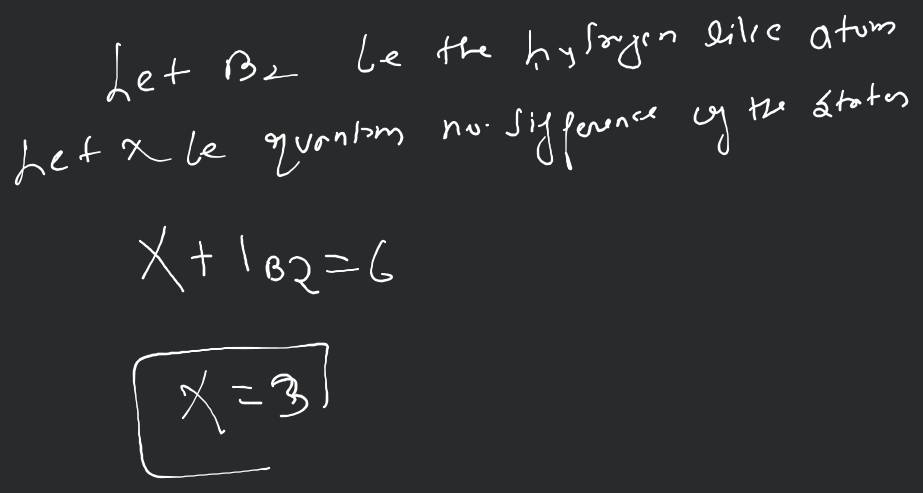 Let B2 be the hydrogen like atom
Let x be quantum no. difference of the states
X+1B2=6
X=3